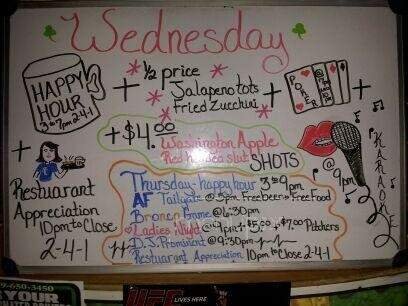 Wednesday
HAPPY
HOUR
3 to 7pm 2-4-1
+
1/2 price
Jalapeno tots
Fried Zucchini
+
POKER
@
7pm
+ $4.00
Washington Apple
Red headed slut
SHOTS
+
Restuarant
Appreciation
10pm to Close
2-4-1
KARAOKE
@ 9pm
Thursday-happy hour 3 to 9pm
AF Tailgate @ 5pm Free Beer + Free Food
Bronco Game @ 6:30pm
Ladies Night @ 9pm + $5.00 + $7.00 Pitchers
D.J. Prominent @ 9:30pm
Restuarant Appreciation 10pm to Close 2-4-1
9-680-3450
UFC
LIVES HERE